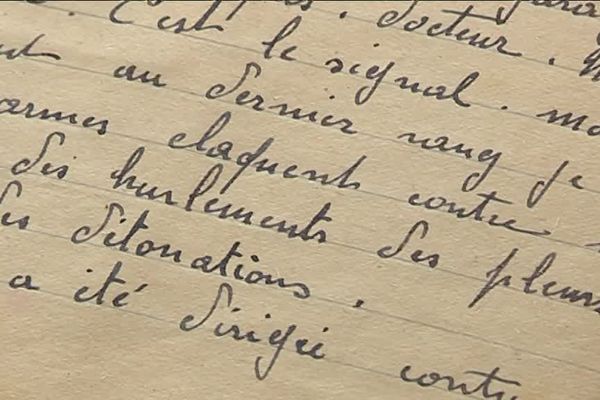 C'est le signal. docteur.
au dernier rang je
armes claquent contre
des hurlements des pleurs
des détonations.
a été dirigé contre